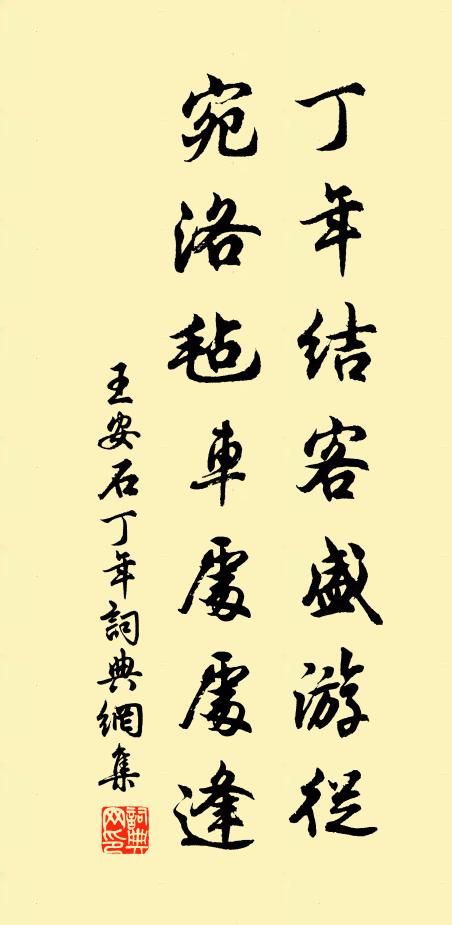 丁年结客盛游從
宛洛毡車處處逢
王安石丁年詞典網集
詞典網印